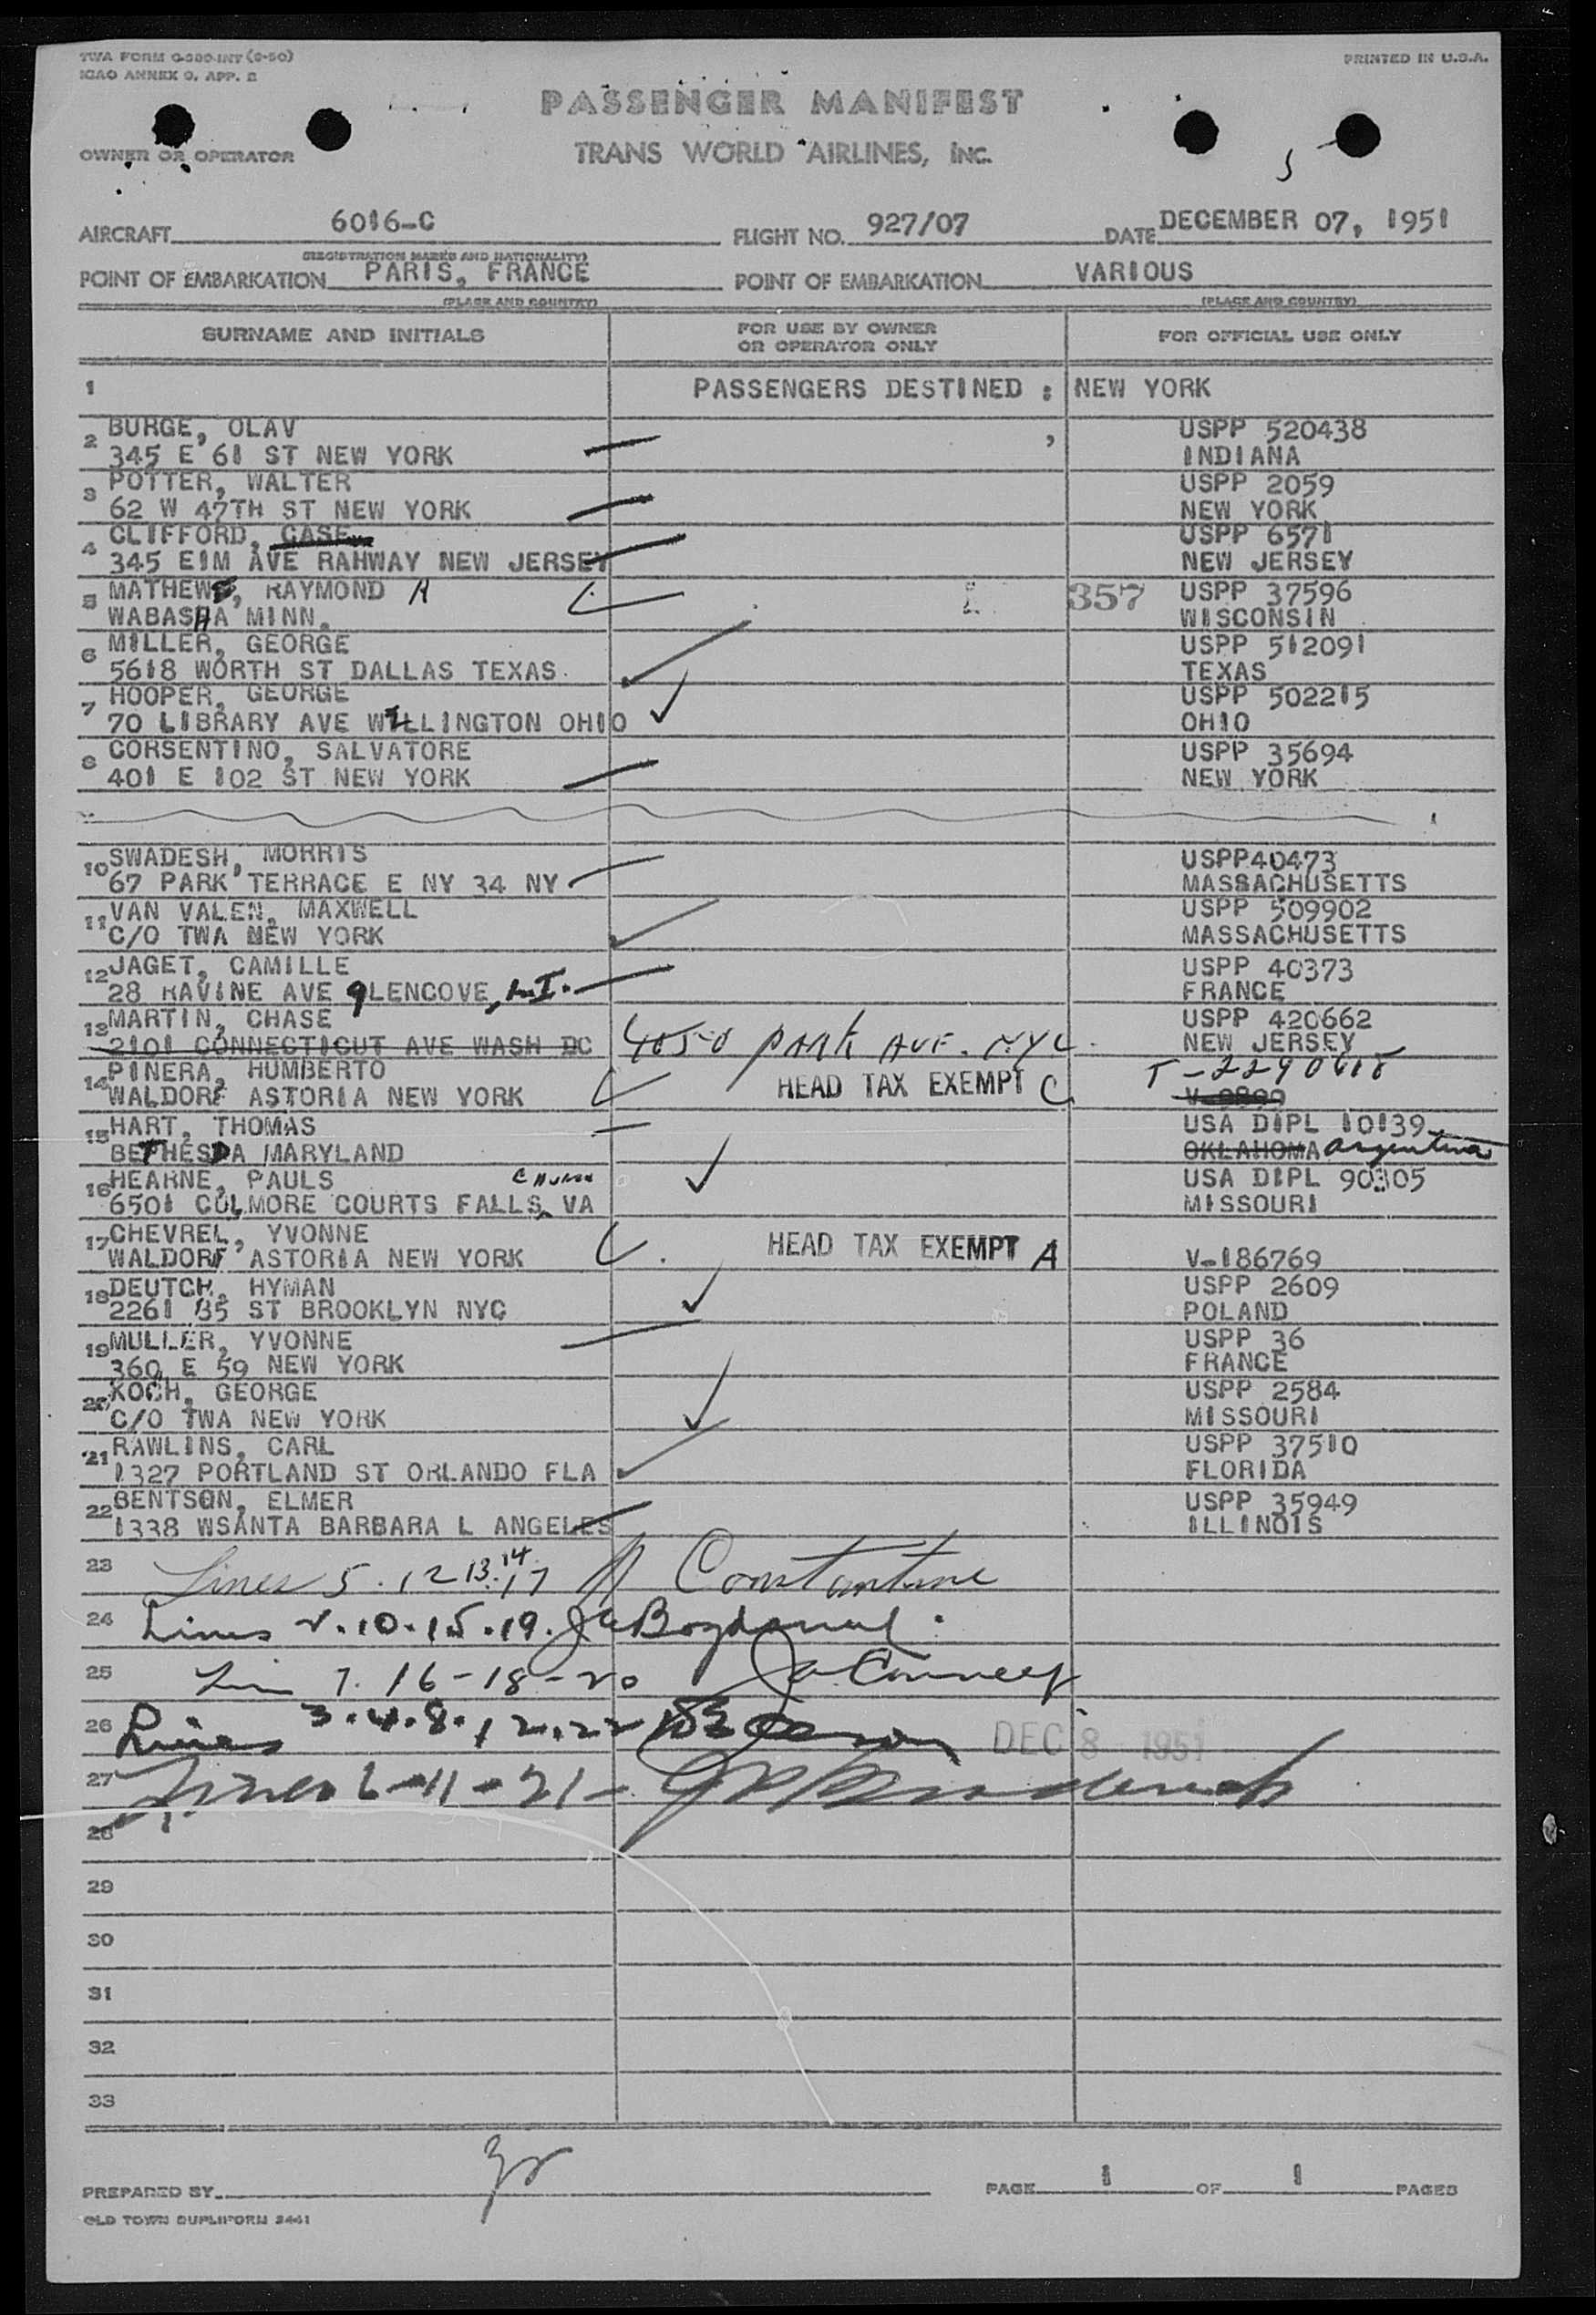 TWA FORM O-380-INT (9-50)
ICAO ANNEX 9, APP. 2
PRINTED IN U.S.A.
PASSENGER MANIFEST
OWNER OR OPERATOR
TRANS WORLD AIRLINES, INC.
AIRCRAFT 6016-C FLIGHT NO. 927/07 DATE DECEMBER 07, 1951
(REGISTRATION MARKS AND NATIONALITY)
POINT OF EMBARKATION PARIS, FRANCE POINT OF EMBARKATION VARIOUS
(PLACE AND COUNTRY) (PLACE AND COUNTRY)
SURNAME AND INITIALS FOR USE BY OWNER OR OPERATOR ONLY FOR OFFICIAL USE ONLY
1 PASSENGERS DESTINED : NEW YORK
2 BURGE, OLAV USPP 520438
345 E 61 ST NEW YORK INDIANA
3 POTTER, WALTER USPP 2059
62 W 47TH ST NEW YORK NEW YORK
4 CLIFFORD, CASE USPP 6571
345 ElM AVE RAHWAY NEW JERSEY NEW JERSEY
5 MATHEWS, RAYMOND H 357 USPP 37596
WABASHA MINN. WISCONSIN
6 MILLER, GEORGE USPP 512091
5618 WORTH ST DALLAS TEXAS. TEXAS
7 HOOPER, GEORGE USPP 502215
70 LIBRARY AVE WELLINGTON OHIO OHIO
8 CORSENTINO, SALVATORE USPP 35694
401 E 102 ST NEW YORK NEW YORK
10 SWADESH, MORRIS USPP40473
67 PARK TERRACE E NY 34 NY MASSACHUSETTS
11 VAN VALEN, MAXWELL USPP 509902
C/O TWA NEW YORK MASSACHUSETTS
12 JAGET, CAMILLE USPP 40373
28 RAVINE AVE GLENCOVE, L.I. FRANCE
13 MARTIN, CHASE USPP 420662
2101 CONNECTICUT AVE WASH DC 4050 PARK AVE. NYC. NEW JERSEY
14 PINERA, HUMBERTO T-2290618
WALDORF ASTORIA NEW YORK HEAD TAX EXEMPT C V-9899
15 HART, THOMAS USA DIPL 10139
BETHESDA MARYLAND OKLAHOMA Argentina
16 HEARNE, PAULS CHURCH USA DIPL 90305
6501 CULMORE COURTS FALLS VA MISSOURI
17 CHEVREL, YVONNE HEAD TAX EXEMPT A
WALDORF ASTORIA NEW YORK V-186769
18 DEUTCH, HYMAN USPP 2609
2261 85 ST BROOKLYN NYC POLAND
19 MULLER, YVONNE USPP 36
360 E 59 NEW YORK FRANCE
20 KOCH, GEORGE USPP 2584
C/O TWA NEW YORK MISSOURI
21 RAWLINS, CARL USPP 37510
1327 PORTLAND ST ORLANDO FLA FLORIDA
22 BENTSON, ELMER USPP 35949
1338 WSANTA BARBARA L ANGELES ILLINOIS
23 Lines 5. 12 13. 14. 17 Constantine
24 Lines 2.10.15.19.
25 Lin 7. 16-18-20
26 Lines 3.4.8.12.22 DEC 8 1951
27 Lines 6-11-21-
28
29
30
31
32
33
PREPARED BY PAGE 1 OF 1 PAGES
OLD TOWN DUPLIFORM 2441